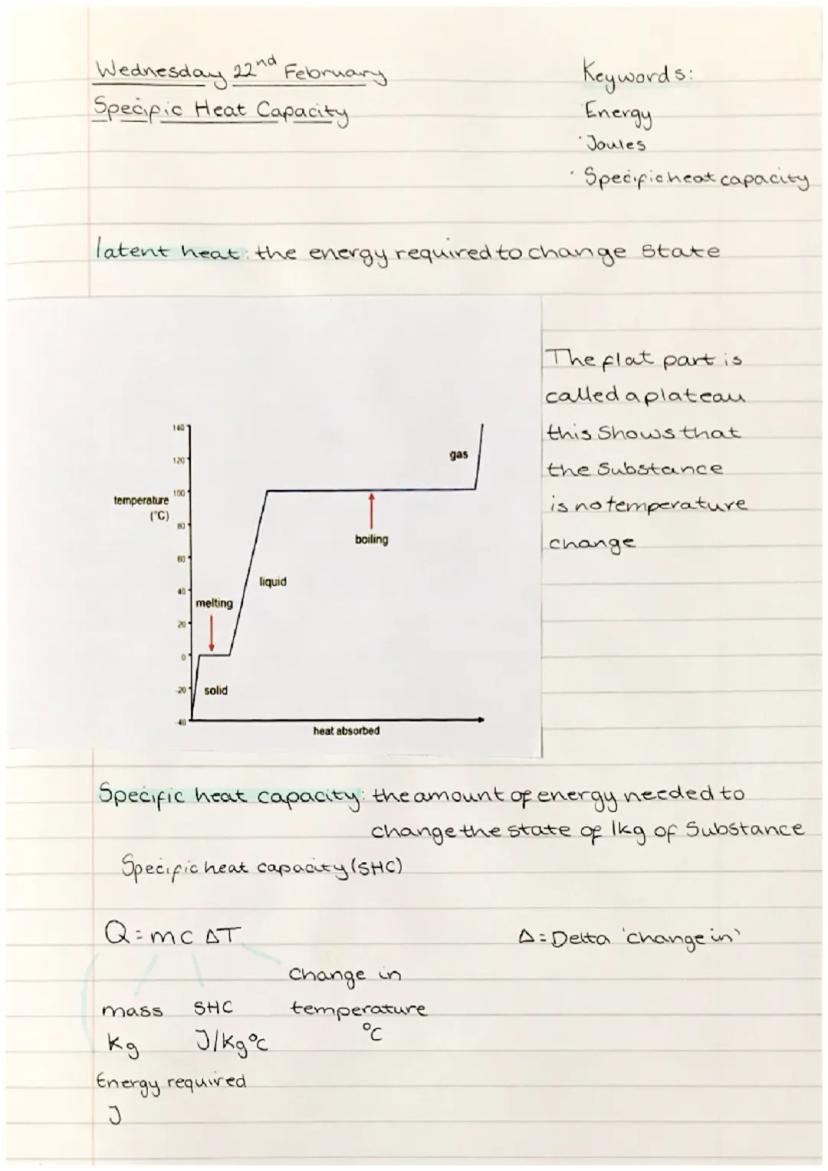 Wednesday 22nd February
Specific Heat Capacity
Keywords:
Energy
· Joules
· Specific heat capacity
latent heat: the energy required to change state
The flat part is
called a plateau
this shows that
the substance
is no temperature
change
140
120
100
80
60
40
20
0
-20
-40
temperature
(°C)
gas
boiling
liquid
melting
solid
heat absorbed
Specific heat capacity: the amount of energy needed to
change the state of 1kg of substance
Specific heat capacity (SHC)
Q = mc ΔT
Δ = Delta 'change in'
Change in
mass SHC temperature
kg J/kg°c °C
Energy required
J